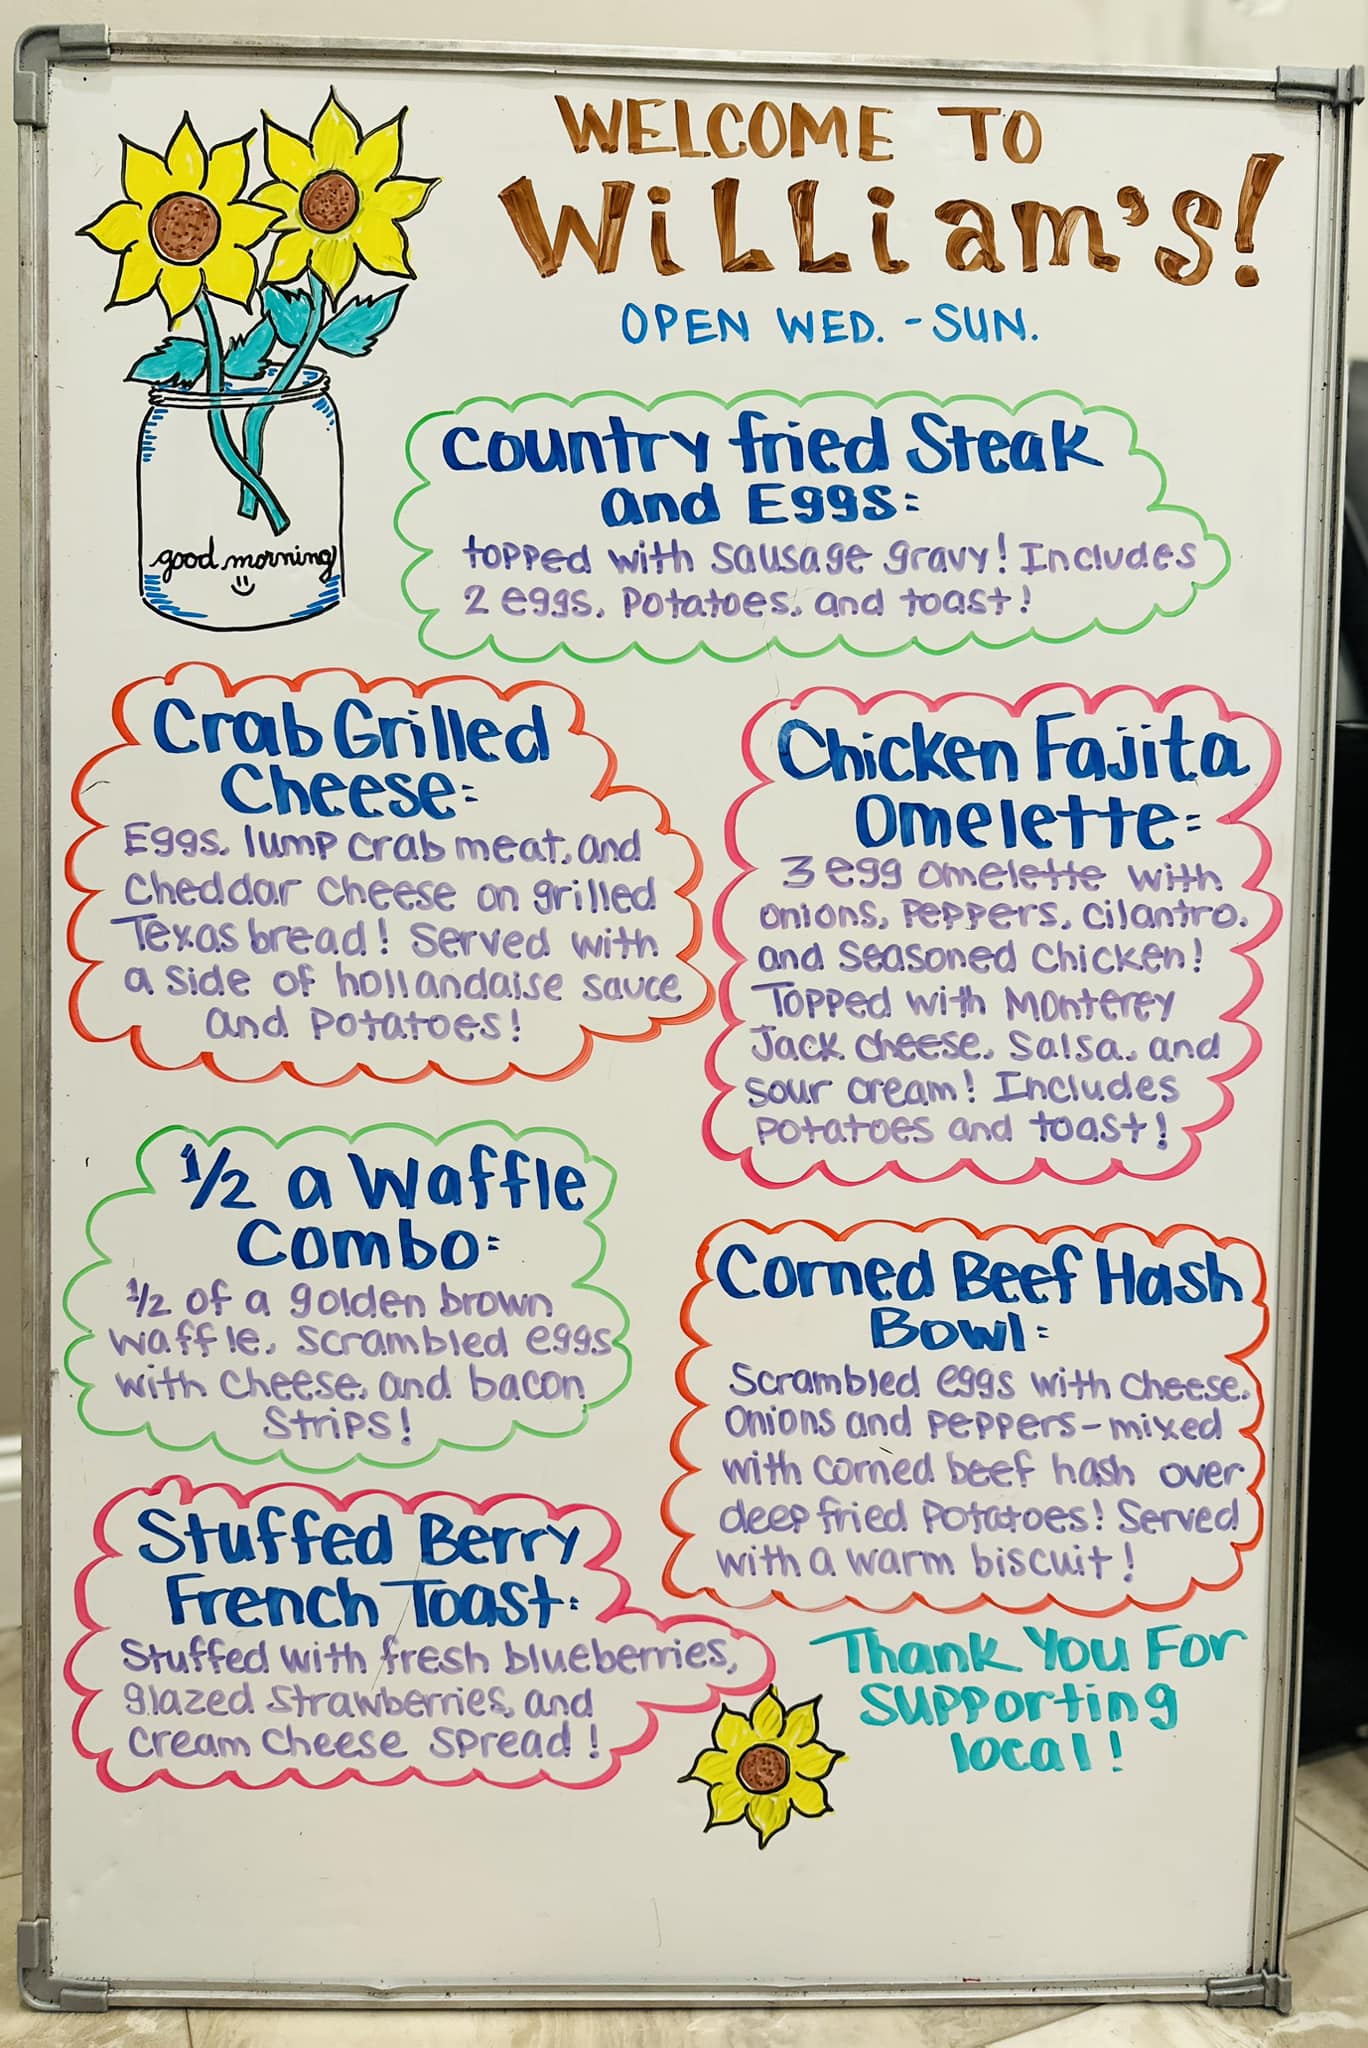 WELCOME TO
WiLLiam's!
OPEN WED. - SUN.
good morning
Country fried Steak
and Eggs:
topped with sausage gravy! Includes
2 eggs, potatoes, and toast!
Crab Grilled
Cheese:
Eggs, lump crab meat, and
cheddar cheese on grilled
Texas bread! Served with
a side of hollandaise sauce
and potatoes!
Chicken Fajita
Omelette:
3 egg omelette with
onions, peppers, cilantro,
and seasoned chicken!
Topped with Monterey
Jack cheese, salsa, and
sour cream! Includes
potatoes and toast!
1/2 a Waffle
Combo:
1/2 of a golden brown
waffle, scrambled eggs
with cheese, and bacon
strips!
Corned Beef Hash
Bowl:
Scrambled eggs with cheese,
onions and peppers - mixed
with corned beef hash over
deep fried potatoes! Served
with a warm biscuit!
Stuffed Berry
French Toast:
Stuffed with fresh blueberries,
glazed strawberries, and
cream cheese spread!
Thank You For
supporting
local!